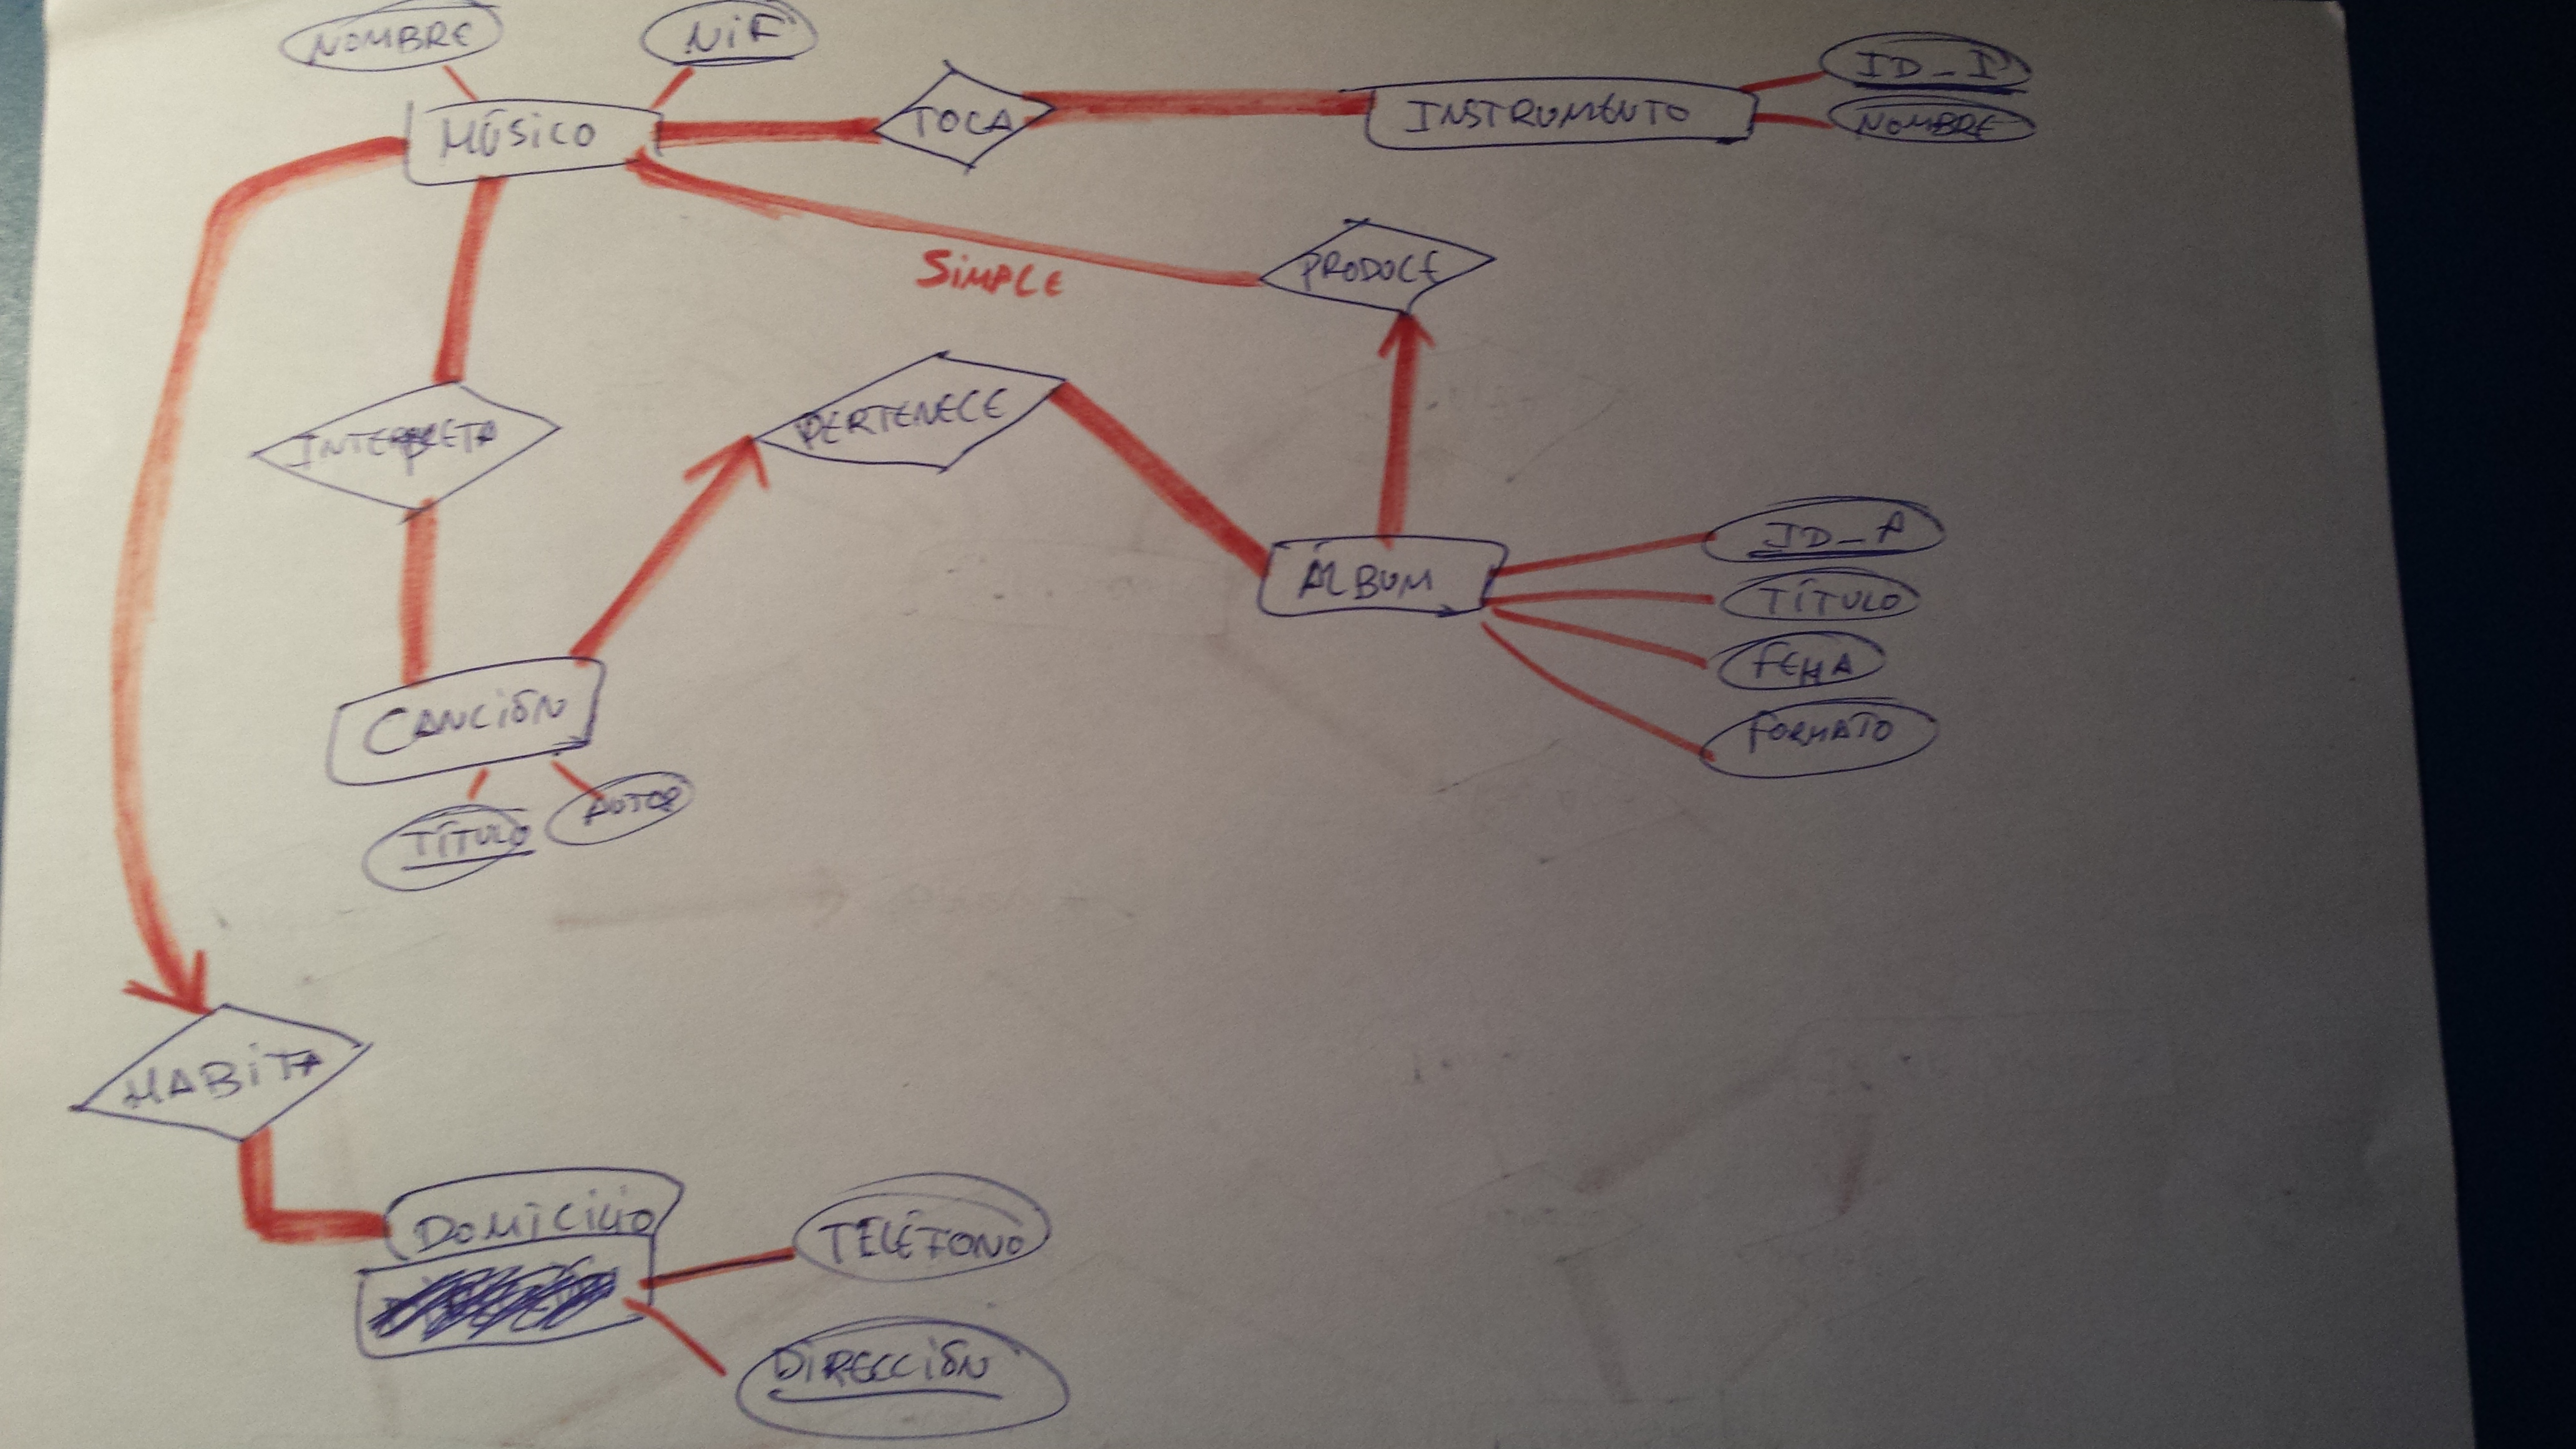 NOMBRE
NIF
MÚSICO
TOCA
INSTRUMENTO
ID_I
NOMBRE
SIMPLE
PRODUCE
INTERPRETA
PERTENECE
ÁLBUM
ID_A
TÍTULO
FEHA
FORMATO
CANCIÓN
TÍTULO
AUTOR
HABITA
DOMICILIO
TELÉFONO
DIRECCIÓN